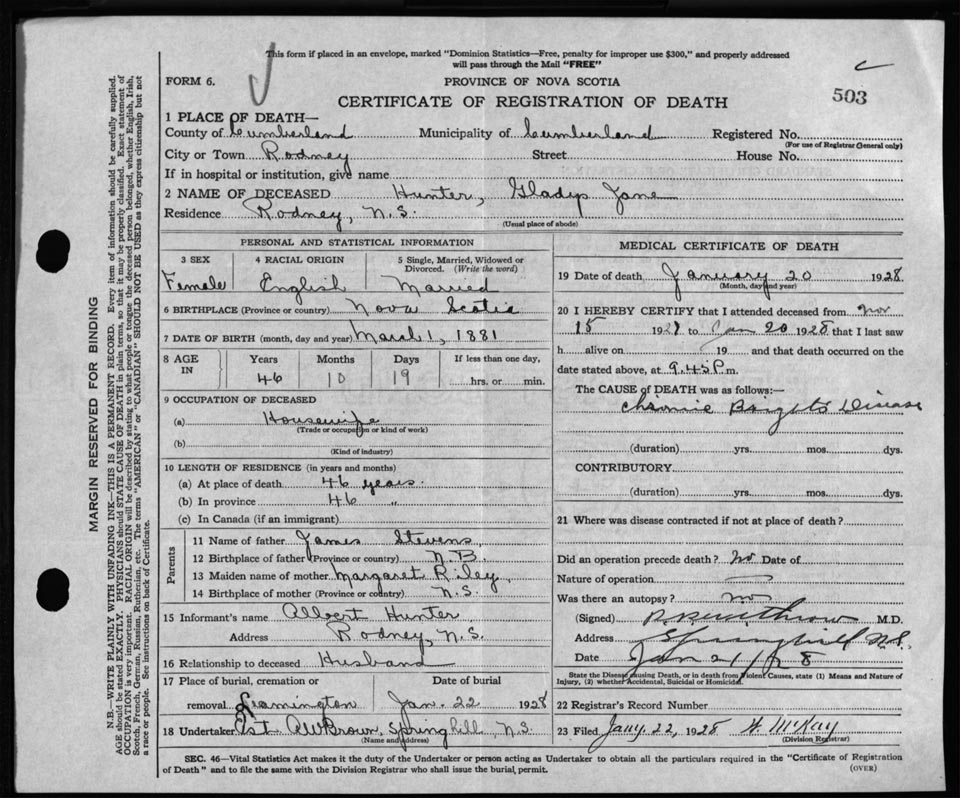 This form if placed in an envelope, marked "Dominion Statistics—Free, penalty for improper use $300," and properly addressed
will pass through the Mail "FREE"
FORM 6.
PROVINCE OF NOVA SCOTIA
503
CERTIFICATE OF REGISTRATION OF DEATH
1 PLACE OF DEATH—
County of Cumberland Municipality of Cumberland Registered No.
(For use of Registrar General only)
City or Town Rodney Street House No.
If in hospital or institution, give name
2 NAME OF DECEASED Hunter, Gladys Jane
Residence Rodney, N.S.
(Usual place of abode)
PERSONAL AND STATISTICAL INFORMATION
3 SEX 4 RACIAL ORIGIN 5 Single, Married, Widowed or
Divorced. (Write the word)
Female English Married
6 BIRTHPLACE (Province or country) Nova Scotia
7 DATE OF BIRTH (month, day and year) March 1, 1881
8 AGE IN Years Months Days If less than one day,
46 10 19 hrs. or min.
9 OCCUPATION OF DECEASED
(a) Housewife
(Trade or occupation or kind of work)
(b)
(Kind of industry)
10 LENGTH OF RESIDENCE (in years and months)
(a) At place of death 46 years.
(b) In province 46 "
(c) In Canada (if an immigrant)
Parents
11 Name of father James Stevens
12 Birthplace of father (Province or country) N.B.
13 Maiden name of mother Margaret Riley
14 Birthplace of mother (Province or country) N.S.
15 Informant's name Albert Hunter
Address Rodney, N.S.
16 Relationship to deceased Husband
17 Place of burial, cremation or Date of burial
removal Leamington Jan. 22 1928
18 Undertaker A W Brown, Springhill, N.S.
(Name and address)
MEDICAL CERTIFICATE OF DEATH
19 Date of death January 20 1928
(Month, day and year)
20 I HEREBY CERTIFY that I attended deceased from Nov
15 192 to Jan 20 1928 that I last saw
h alive on 19 and that death occurred on the
date stated above, at 9.45 P.m.
The CAUSE of DEATH was as follows:—
Chronic Brights Disease
(duration) yrs. mos. dys.
CONTRIBUTORY
(duration) yrs. mos. dys.
21 Where was disease contracted if not at place of death?
Did an operation precede death? No Date of
Nature of operation
Was there an autopsy? no
(Signed) M.D.
Address Springhill N.S.
Date Jan 21/28
State the Disease causing Death, or in death from Violent Causes, state (1) Means and Nature of
Injury, (2) whether Accidental, Suicidal or Homicidal.
22 Registrar's Record Number
23 Filed Jany. 22, 1928 McKay
(Division Registrar)
SEC. 46—Vital Statistics Act makes it the duty of the Undertaker or person acting as Undertaker to obtain all the particulars required in the "Certificate of Registration
of Death" and to file the same with the Division Registrar who shall issue the burial permit.
(OVER)
MARGIN RESERVED FOR BINDING
N.B.—WRITE PLAINLY WITH UNFADING INK—THIS IS A PERMANENT RECORD. Every item of information should be carefully supplied.
AGE should be stated EXACTLY. PHYSICIANS should STATE CAUSE OF DEATH in plain terms, so that it may be properly classified. Exact statement of
OCCUPATION is very important. RACIAL ORIGIN will be described by stating to what people or tongue the deceased person belonged, whether English, Irish,
Scotch, French, German, Russian, Ruthenian, etc. The terms "AMERICAN" or "CANADIAN" SHOULD NOT BE USED as they express citizenship but not
a race or people. See instructions on back of Certificate.